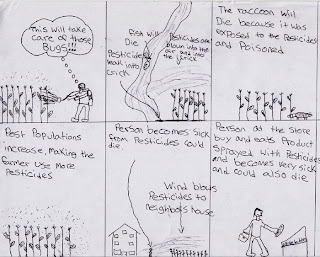 This will take
care of those
BUGS!!!
fish will
Die
Pesticides
leak into
Crick
Pesticides are
blown into the
air and into
the crick
The raccoon will
Die because it was
exposed to the Pesticides
and Poisoned
Pest Populations
increase, Making the
farmer use More
Pesticides
Person becomes sick
from Pesticides could
die.
Wind blows
Pesticides to
neighbors house
Person at the store
buy and eats Product
Sprayed with Pesticides
and becomes very sick
and could also die